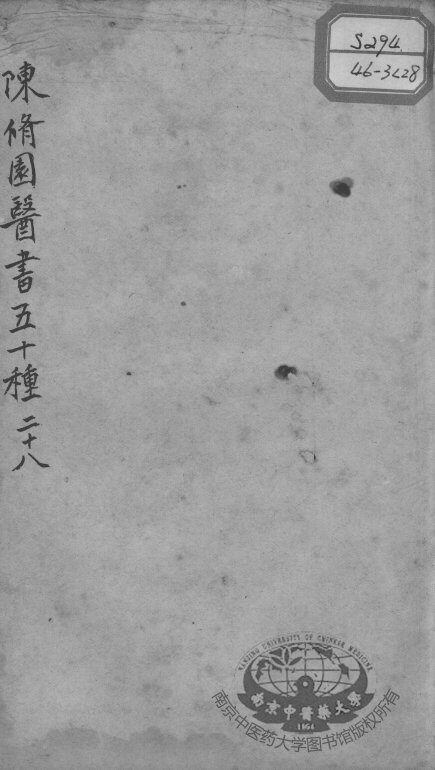 陳脩園醫書五十種 二十八
S294
46-3:28
NANJING UNIVERSITY OF CHINESE MEDICINE
南京中醫藥大學
1954
南京中医药大学图书馆版权所有